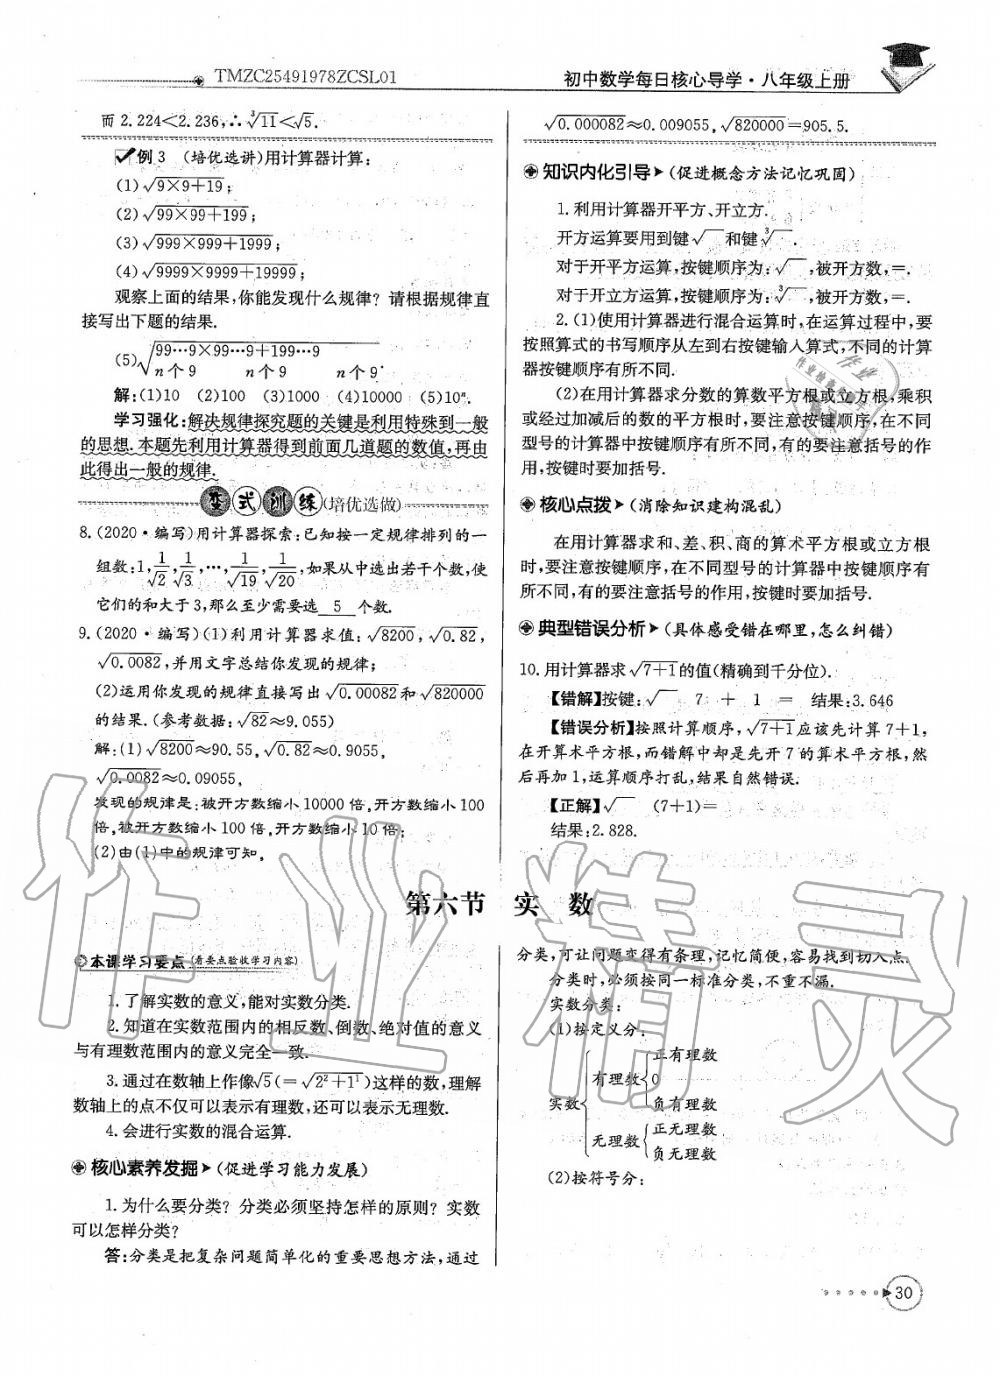 TMZC25491978ZCSL01
初中数学每日核心导学·八年级上册
而 2.224<2.236,∴∛11<√5.
例 3 (培优选讲)用计算器计算:
(1)√(9×9+19);
(2)√(99×99+199);
(3)√(999×999+1999);
(4)√(9999×9999+19999);
观察上面的结果,你能发现什么规律? 请根据规律直
接写出下题的结果.
(5)√(99…9×99…9+199…9)
n个9 n个9 n个9.
解:(1)10 (2)100 (3)1000 (4)10000 (5)10ⁿ.
学习强化:解决规律探究题的关键是利用特殊到一般
的思想.本题先利用计算器得到前面几道题的数值,再由
此得出一般的规律.
变式训练(培优选做)
8.(2020·编写)用计算器探索:已知按一定规律排列的一
组数:1,1/√2,1/√3,…,1/√19,1/√20,如果从中选出若干个数,使
它们的和大于3,那么至少需要选 5 个数.
9.(2020·编写)(1)利用计算器求值:√8200,√0.82,
√0.0082,并用文字总结你发现的规律;
(2)运用你发现的规律直接写出√0.00082和√820000
的结果.(参考数据:√82≈9.055)
解:(1)√8200≈90.55,√0.82≈0.9055,
√0.0082≈0.09055,
发现的规律是:被开方数缩小10000倍,开方数缩小100
倍,被开方数缩小100倍,开方数缩小10倍;
(2)由(1)中的规律可知,
√0.000082≈0.009055,√820000=905.5.
知识内化引导(促进概念方法记忆巩固)
1.利用计算器开平方、开立方.
开方运算要用到键√ 和键∛ .
对于开平方运算,按键顺序为:√ ,被开方数,=.
对于开立方运算,按键顺序为:∛ ,被开方数,=.
2.(1)使用计算器进行混合运算时,在运算过程中,要
按照算式的书写顺序从左到右按键输入算式,不同的计算
器按键顺序有所不同.
(2)在用计算器求分数的算数平方根或立方根,乘积
或经过加减后的数的平方根时,要注意按键顺序,在不同
型号的计算器中按键顺序有所不同,有的要注意括号的作
用,按键时要加括号.
核心点拨(消除知识建构混乱)
在用计算器求和、差、积、商的算术平方根或立方根
时,要注意按键顺序,在不同型号的计算器中按键顺序有
所不同,有的要注意括号的作用,按键时要加括号.
典型错误分析(具体感受错在哪里,怎么纠错)
10.用计算器求√(7+1)的值(精确到千分位).
【错解】按键:√ 7 + 1 = 结果:3.646
【错误分析】按照计算顺序,√(7+1)应该先计算7+1,
在开算术平方根,而错解中却是先开7的算术平方根,然
后再加1,运算顺序打乱,结果自然错误.
【正解】√ (7+1)=
结果:2.828.
第六节 实 数
本课学习要点(看要点验收学习内容)
1.了解实数的意义,能对实数分类.
2.知道在实数范围内的相反数、倒数、绝对值的意义
与有理数范围内的意义完全一致.
3.通过在数轴上作像√5(=√(2²+1²))这样的数,理解
数轴上的点不仅可以表示有理数,还可以表示无理数.
4.会进行实数的混合运算.
核心素养发掘(促进学习能力发展)
1.为什么要分类? 分类必须坚持怎样的原则? 实数
可以怎样分类?
答:分类是把复杂问题简单化的重要思想方法,通过
分类,可让问题变得有条理,记忆简便,容易找到切入点.
分类时,必须按同一标准分类,不重不漏.
实数分类:
(1)按定义分:
正有理数
有理数 0
实数 负有理数
正无理数
无理数
负无理数
(2)按符号分:
30
作业精灵